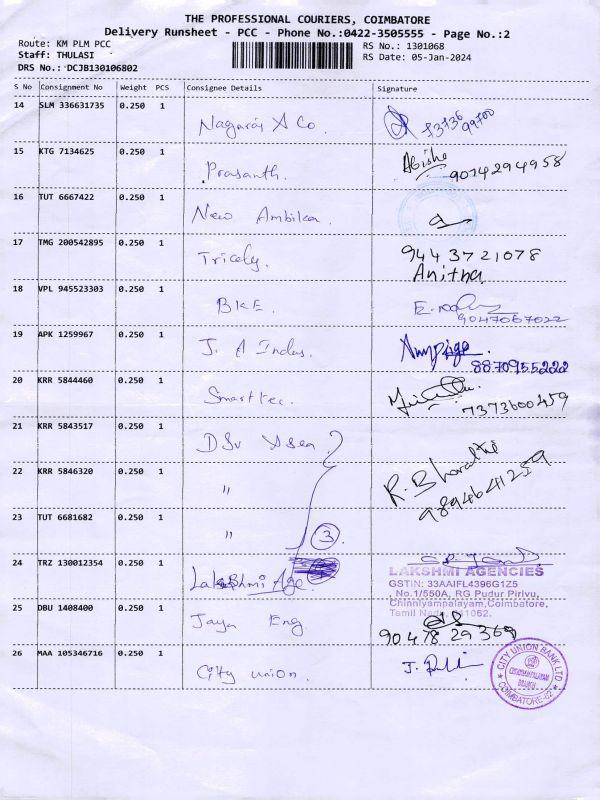 THE PROFESSIONAL COURIERS, COIMBATORE
Delivery Runsheet - PCC - Phone No.:0422-3505555 - Page No.:2
Route: KM PLM PCC
RS No.: 1301068
Staff: THULASI
RS Date: 05-Jan-2024
DRS No.: DCJB130106802
S No Consignment No Weight PCS Consignee Details Signature
14 SLM 336631735 0.250 1 Nagaraj & Co. 73736 99700
15 KTG 7134625 0.250 1 Prasanth. 9074294958
16 TUT 6667422 0.250 1 New Ambika.
17 TMG 200542895 0.250 1 Tricely. 9443721078
Anitha
18 VPL 945523303 0.250 1 BKE. 9047067022
19 APK 1259967 0.250 1 J. A Indus. 8870955222
20 KRR 5844460 0.250 1 Smarttec. 7373600459
21 KRR 5843517 0.250 1 DSV
22 KRR 5846320 0.250 1 " R. Bharathi
9894641259
23 TUT 6681682 0.250 1 " 3
24 TRZ 130012354 0.250 1 Lakshmi Age.
LAKSHMI AGENCIES
GSTIN: 33AAIFL4396G1Z5
No.1/550A, RG Pudur Pirivu,
Chinniyampalayam, Coimbatore,
Tamil
25 DBU 1408400 0.250 1 Jaya Eng 90478 29369
26 MAA 105346716 0.250 1 City union. J.
CITY UNION BANK LTD
BRANCH
COIMBATORE-62